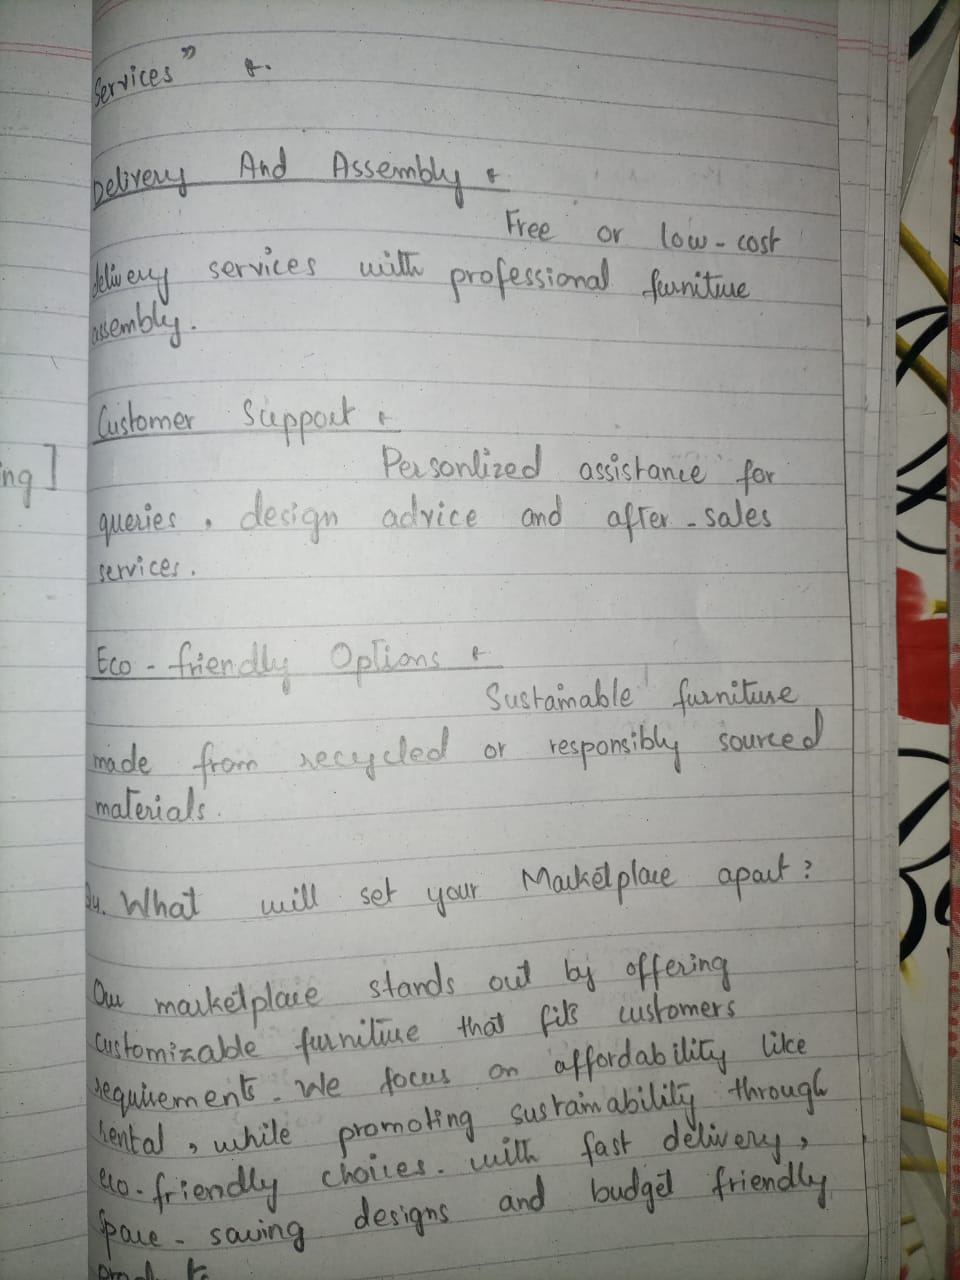 Services" :-
Delivery And Assembly :-
Free or low-cost
delivery services with professional furniture
assembly.
Customer Support :-
ng]
Personlized assistance for
queries, design advice and after-sales
services.
Eco-friendly Options :-
Sustainable furniture
made from recycled or responsibly sourced
materials.
Q4. What will set your Marketplace apart?
Our marketplace stands out by offering
customizable furniture that fits customers
requirements. We focus on affordability like
rental, while promoting sustainability through
eco-friendly choices. with fast delivery,
space-saving designs and budget friendly
products